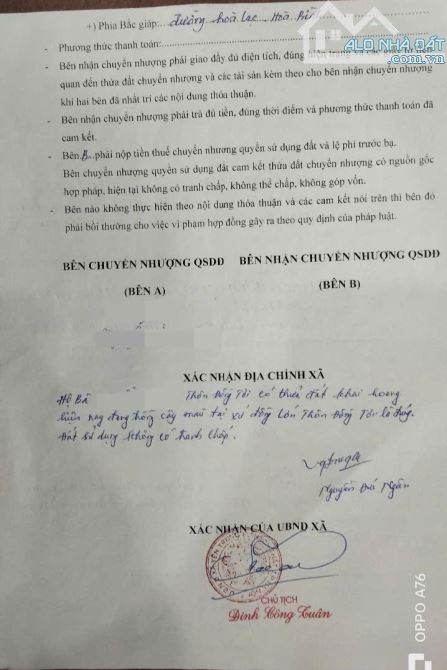 +) Phía Bắc giáp: đường hoà lạc Hoà Bình
ALO NHÀ ĐẤT
.com.vn
- Phương thức thanh toán:
- Bên chuyển nhượng phải giao đầy đủ diện tích, đúng hiện trạng và các giấy tờ liên
quan đến thửa đất chuyển nhượng và các tài sản kèm theo cho bên nhận chuyển nhượng
khi hai bên đã nhất trí các nội dung thỏa thuận.
- Bên nhận chuyển nhượng phải trả đủ tiền, đúng thời điểm và phương thức thanh toán đã
cam kết.
- Bên B phải nộp tiền thuế chuyển nhượng quyền sử dụng đất và lệ phí trước bạ.
Bên chuyển nhượng quyền sử dụng đất cam kết thửa đất chuyển nhượng có nguồn gốc
hợp pháp, hiện tại không có tranh chấp, không thế chấp, không góp vốn.
- Bên nào không thực hiện theo nội dung thỏa thuận và các cam kết nói trên thì bên đó
phải bồi thường cho việc vi phạm hợp đồng gây ra theo quy định của pháp luật.
BÊN CHUYỂN NHƯỢNG QSDĐ BÊN NHẬN CHUYỂN NHƯỢNG QSDĐ
(BÊN A) (BÊN B)
XÁC NHẬN ĐỊA CHÍNH XÃ
Hộ Bà Thôn Đồng Tơi có thửa đất khai hoang
hiện nay đang trồng cây màu tại xứ đồng Lớn Thôn Đồng Tơi là đúng.
Đất sử dụng không có tranh chấp.
Nguyễn Đức Ngân
XÁC NHẬN CỦA UBND XÃ
CHỦ TỊCH
Đinh Công Tuân
OPPO A76